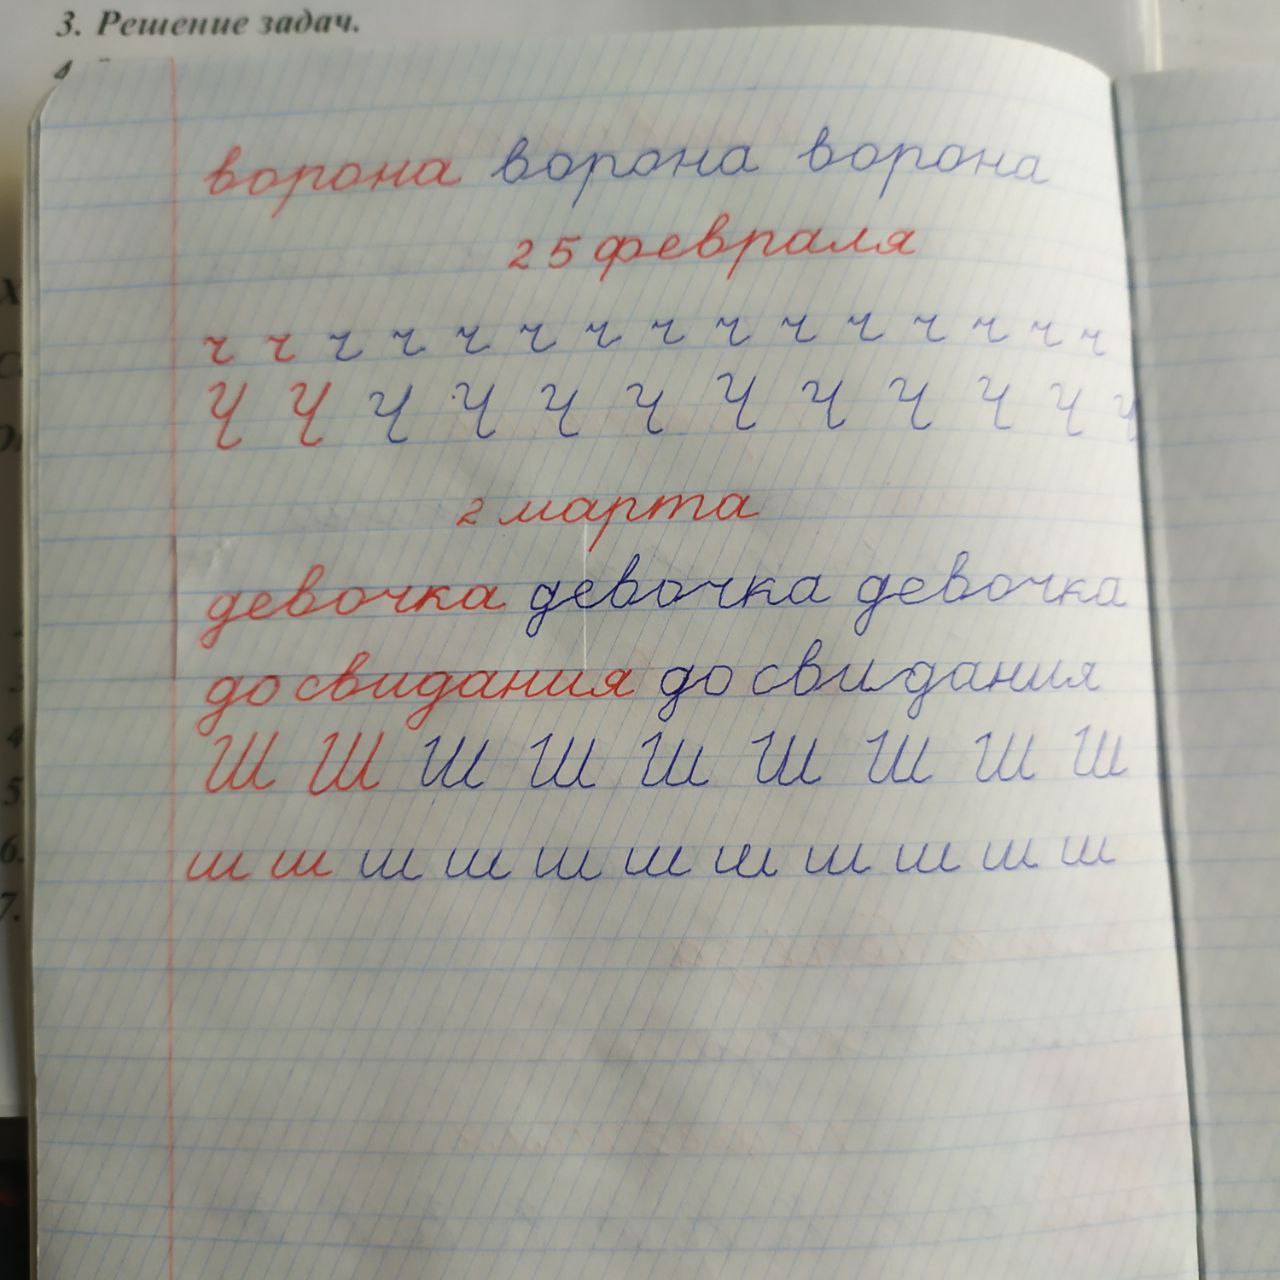 3. Решение задач.
ворона ворона ворона
25 февраля
ч ч ч ч ч ч ч ч ч ч ч ч ч ч ч
Ч Ч Ч Ч Ч Ч Ч Ч Ч Ч Ч Ч
2 марта
девочка девочка девочка
до свидания до свидания
Ш Ш Ш Ш Ш Ш Ш Ш Ш
ш ш ш ш ш ш ш ш ш ш ш
4
5.
6.
7.